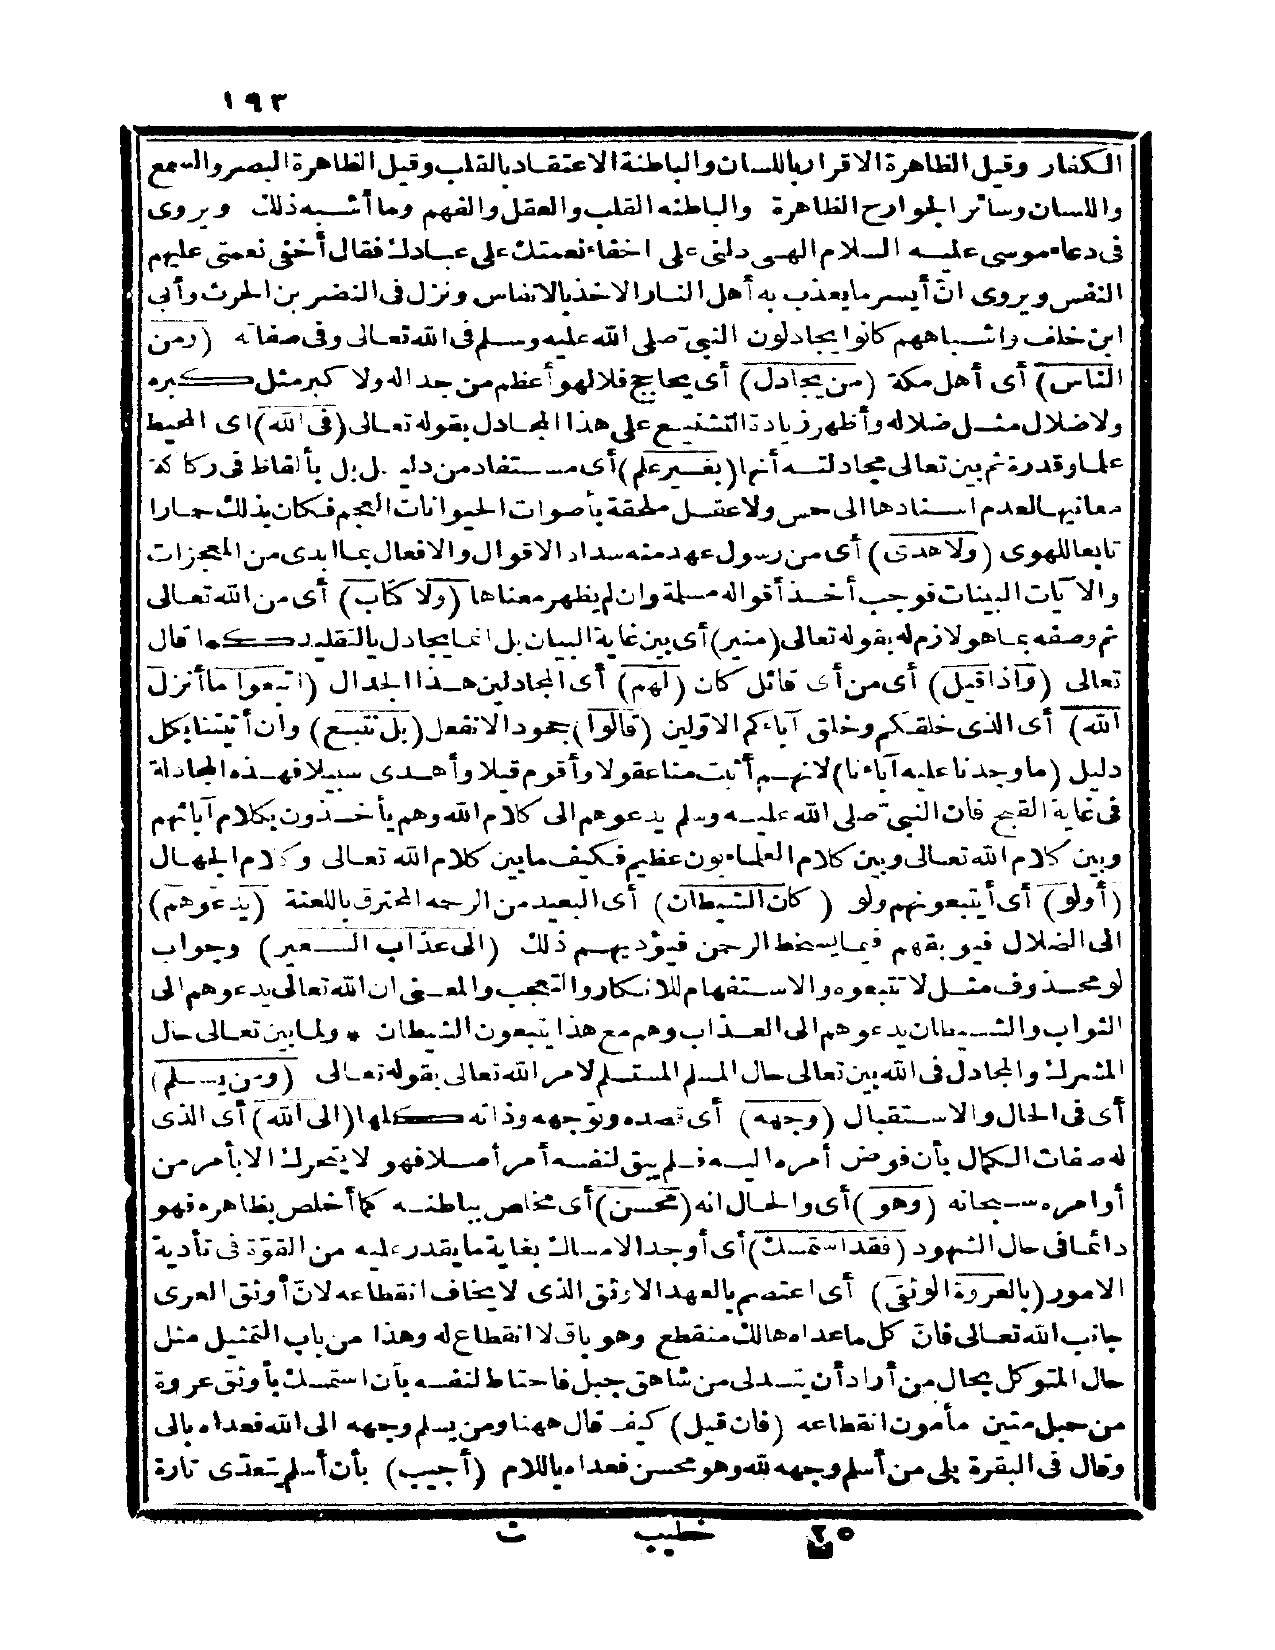 ١٩٣
الكفار وقيل الظاهرة الاقرار باللسان والباطنة الاعتقاد بالقلب وقيل الظاهرة البصر والسمع
واللسان وسائر الجوارح الظاهرة والباطنه القلب والعقل والفهم وما أشبه ذلك ويروى
فى دعاء موسى عليه السلام الهى دلنى على اخفاء نعمتك على عبادك فقال أخفى نعمتى عليهم
النفس ويروى انّ أيسر ما يعذب به أهل النار الاخذ بالانفاس ونزل فى النضر بن الحرث وأبى
ابن خلف واشباههم كانوا يجادلون النبىّ صلى الله عليه وسلم فى الله تعالى وفى صفاته (ومن
الناس) أى أهل مكة (من يجادل) أى يحاجج فلا لهو أعظم من جداله ولا كبر مثل كبره
ولا ضلال مثل ضلاله وأظهر زيادة التشنيع على هذا المجادل بقوله تعالى (فى الله) اى المحيط
علما وقدرة ثم بين تعالى مجادلته أنها (بغير علم) أى مستفاد من دليل بل بألفاظ فى ركاكة
معانيها لعدم استنادها الى حس ولا عقل ملحقة بأصوات الحيوانات العجم فكان بذلك حمارا
تابعا للهوى (ولا هدى) أى من رسول عهد منه سداد الاقوال والافعال بما ابدى من المعجزات
والآيات البينات فوجب أخذ أقواله مسلمة وان لم يظهر معناها (ولا كتاب) أى من الله تعالى
ثم وصفه بما هو لازم له بقوله تعالى (منير) أى بين غاية البيان بل انما يجادل بالتقليد كما قال
تعالى (واذا قيل) أى من أى قائل كان (لهم) أى المجادلين هذا الجدال (اتبعوا ما أنزل
الله) أى الذى خلقكم وخلق آباءكم الاوّلين (قالوا) جحودا لا نفعل (بل نتبع) وان أتيتنا بكل
دليل (ما وجدنا عليه آباءنا) لانهم أثبت منا عقولا وأقوم قيلا وأهدى سبيلا فهذه المجادلة
فى غاية القبح فان النبىّ صلى الله عليه وسلم يدعوهم الى كلام الله وهم يأخذون بكلام آبائهم
وبين كلام الله تعالى وبين كلام العلماء بون عظيم فكيف ما بين كلام الله تعالى وكلام الجهال
(أولو) أى أيتبعونهم ولو (كان الشيطان) أى البعيد من الرحمة المحترق باللعنة (يدعوهم)
الى الضلال فيوبقهم فيما يسخط الرحمن فيؤديهم ذلك (الى عذاب السعير) وجواب
لو محذوف مثل لا تتبعوه والاستفهام للانكار والتعجب والمعنى ان الله تعالى يدعوهم الى
الثواب والشيطان يدعوهم الى العذاب وهم مع هذا يتبعون الشيطان * ولما بين تعالى حال
المشرك والمجادل فى الله بين تعالى حال المسلم المستسلم لامر الله تعالى بقوله تعالى (ومن يسلم)
أى فى الحال والاستقبال (وجهه) أى قصده وتوجهه وذاته كلها (الى الله) أى الذى
له صفات الكمال بأن فوض أمره اليه فلم يبق لنفسه أمر أصلا فهو لا يتحرك الا بأمر من
أوامره سبحانه (وهو) أى والحال انه (محسن) أى مخلص بباطنه كما أخلص بظاهره فهو
دائما فى حال الشهود (فقد استمسك) أى أوجد الامساك بغاية ما يقدر عليه من القوّة فى تأدية
الامور (بالعروة الوثقى) أى اعتصم بالعهد الاوثق الذى لا يخاف انقطاعه لانّ أوثق العرى
جانب الله تعالى فانّ كل ما عداه هالك منقطع وهو باق لا انقطاع له وهذا من باب التمثيل مثل
حال المتوكل بحال من أراد أن يتدلى من شاهق جبل فاحتاط لنفسه بأن استمسك بأوثق عروة
من حبل متين مأمون انقطاعه (فان قيل) كيف قال ههنا ومن يسلم وجهه الى الله فعداه بالى
وقال فى البقرة بلى من أسلم وجهه لله وهو محسن فعداه باللام (أجيب) بأن أسلم يتعدّى تارة
٢٥ خطيب ث